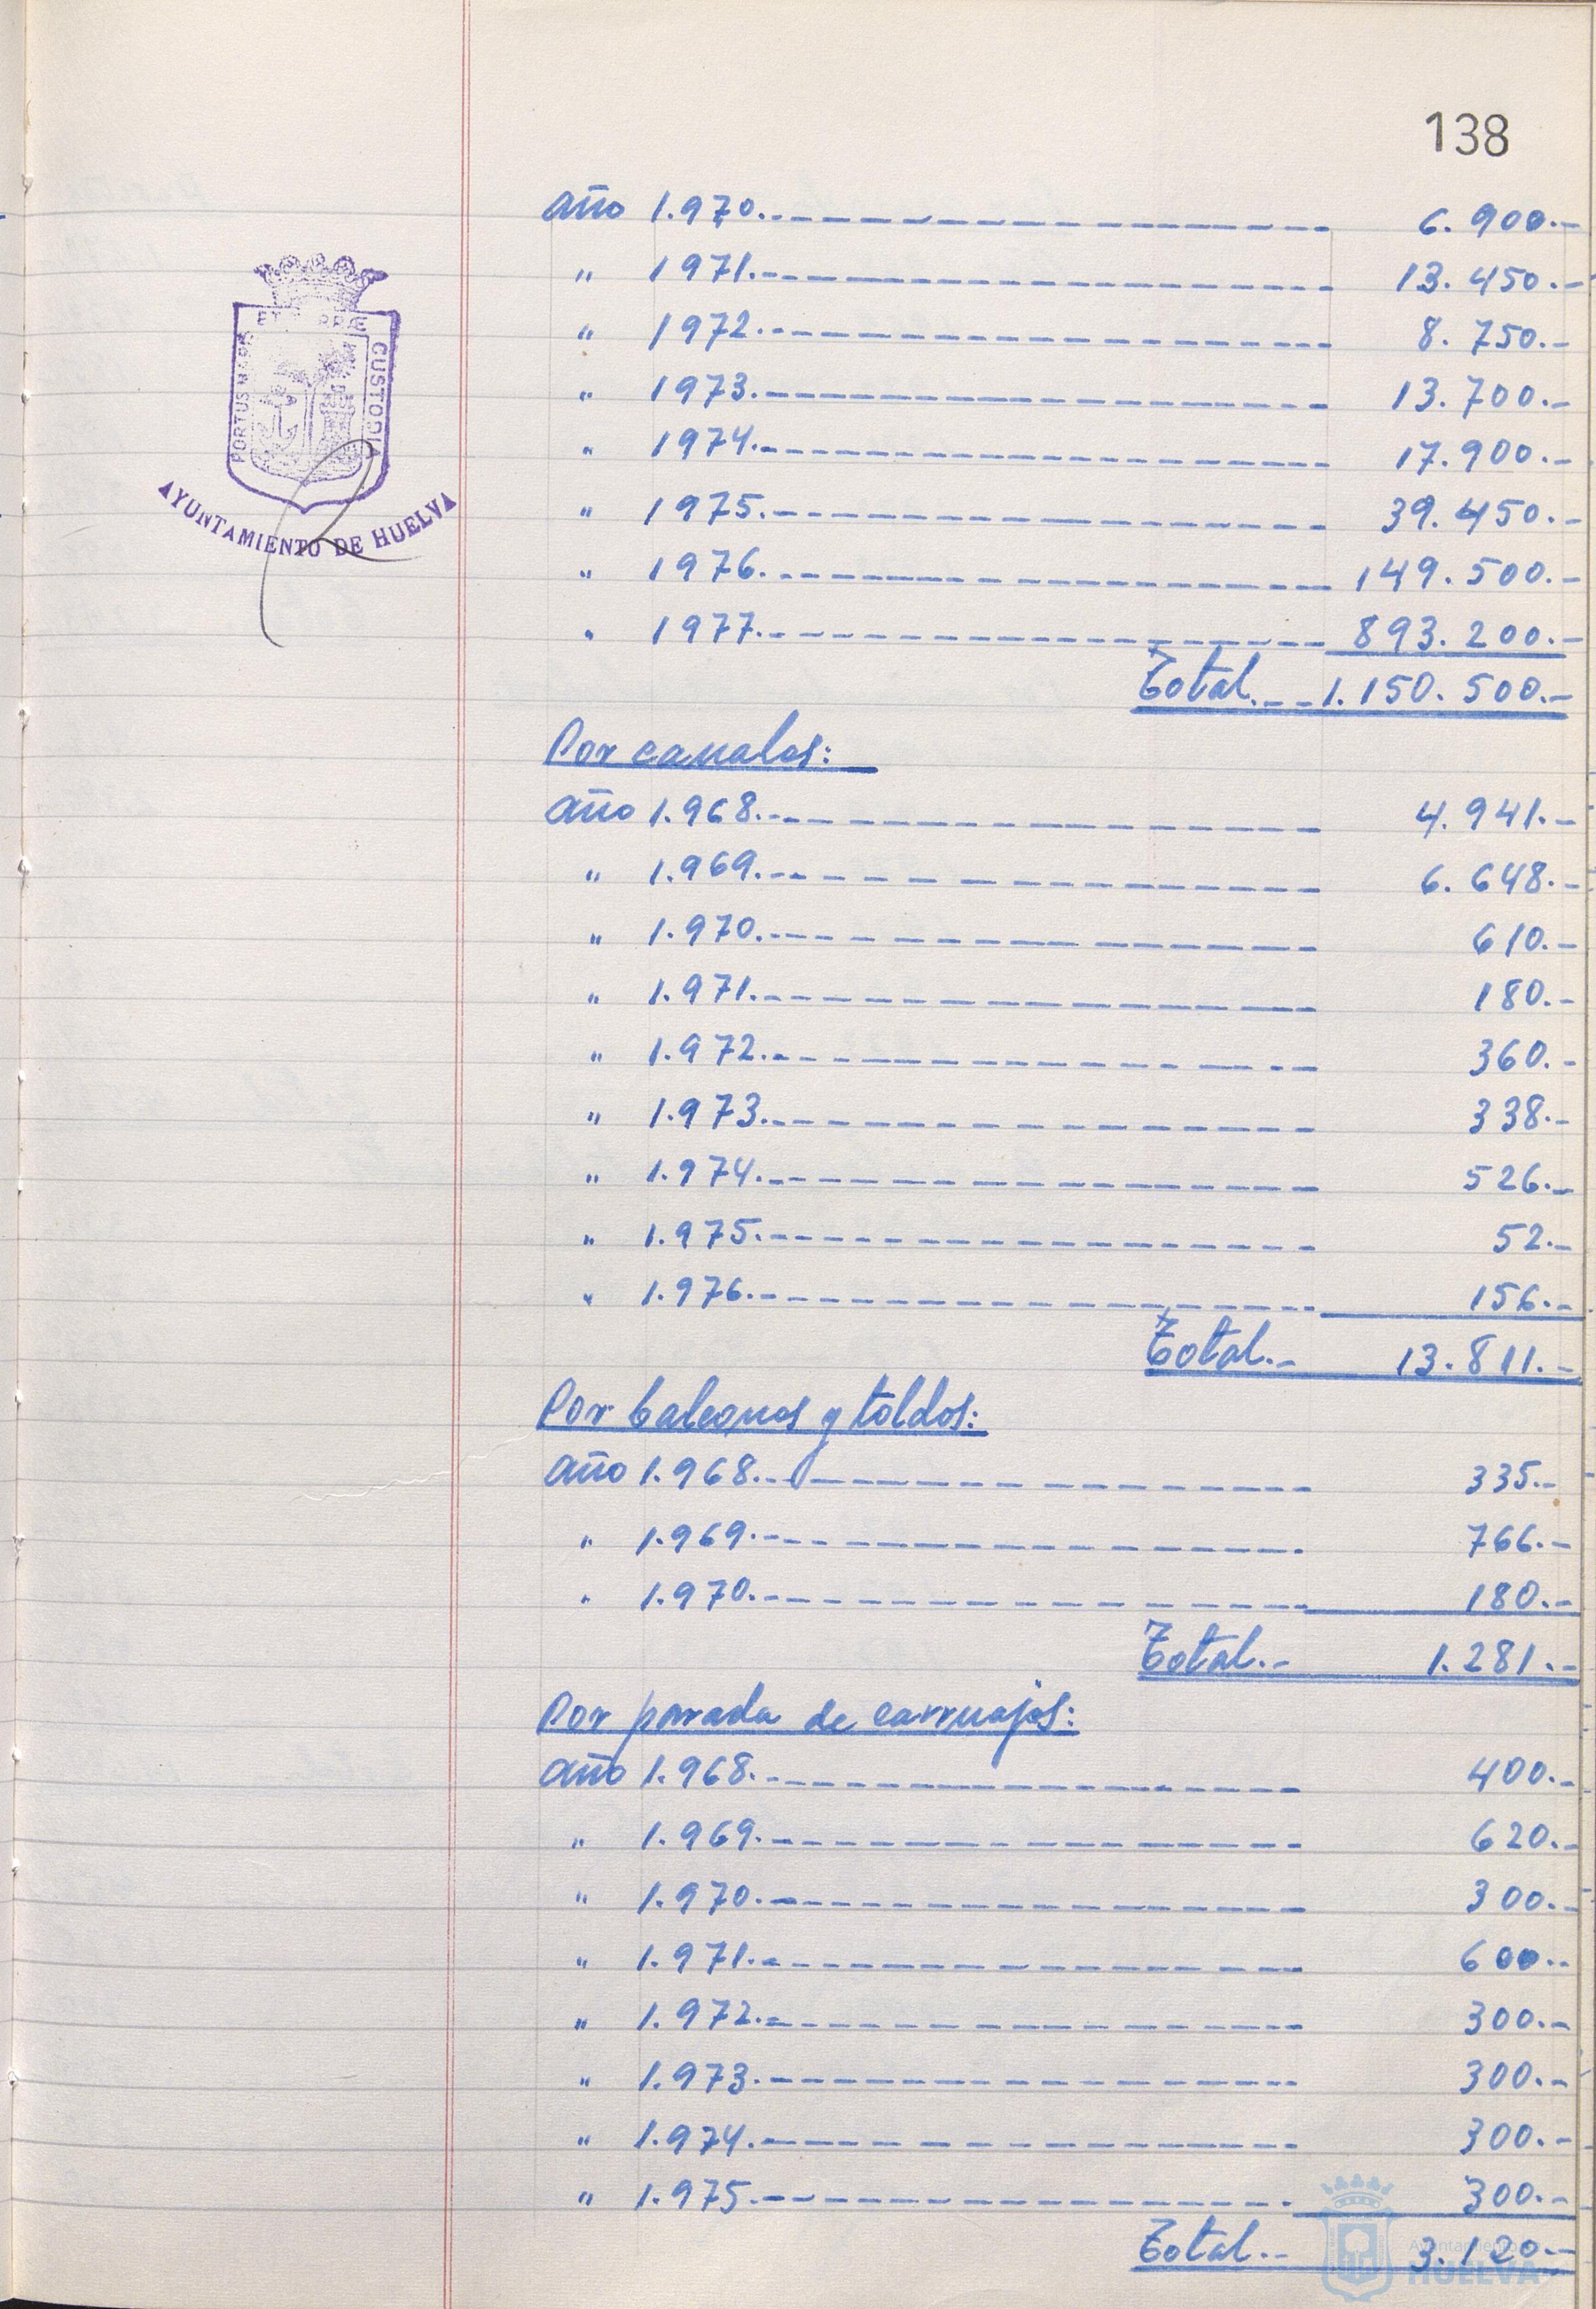 138
año 1.970.- 6.900.-
" 1971.- 13.450.-
" 1972.- 8.750.-
" 1973.- 13.700.-
" 1974.- 17.900.-
" 1975.- 39.450.-
" 1976.- 149.500.-
" 1977.- 893.200.-
Total.- 1.150.500.-
ET RRÆ
PORTUS MARIS
CUSTODIA
AYUNTAMIENTO DE HUELVA
Por canales:
año 1.968.- 4.941.-
" 1.969.- 6.648.-
" 1.970.- 610.-
" 1.971.- 180.-
" 1.972.- 360.-
" 1.973.- 338.-
" 1.974.- 526.-
" 1.975.- 52.-
" 1.976.- 156.-
Total.- 13.811.-
Por balcones y toldos:
año 1.968.- 335.-
" 1.969.- 766.-
" 1.970.- 180.-
Total.- 1.281.-
Por parada de carruajes:
año 1.968.- 400.-
" 1.969.- 620.-
" 1.970.- 300.-
" 1.971.- 600.-
" 1.972.- 300.-
" 1.973.- 300.-
" 1.974.- 300.-
" 1.975.- 300.-
Total.- 3.120.-
Ayuntamiento
HUELVA